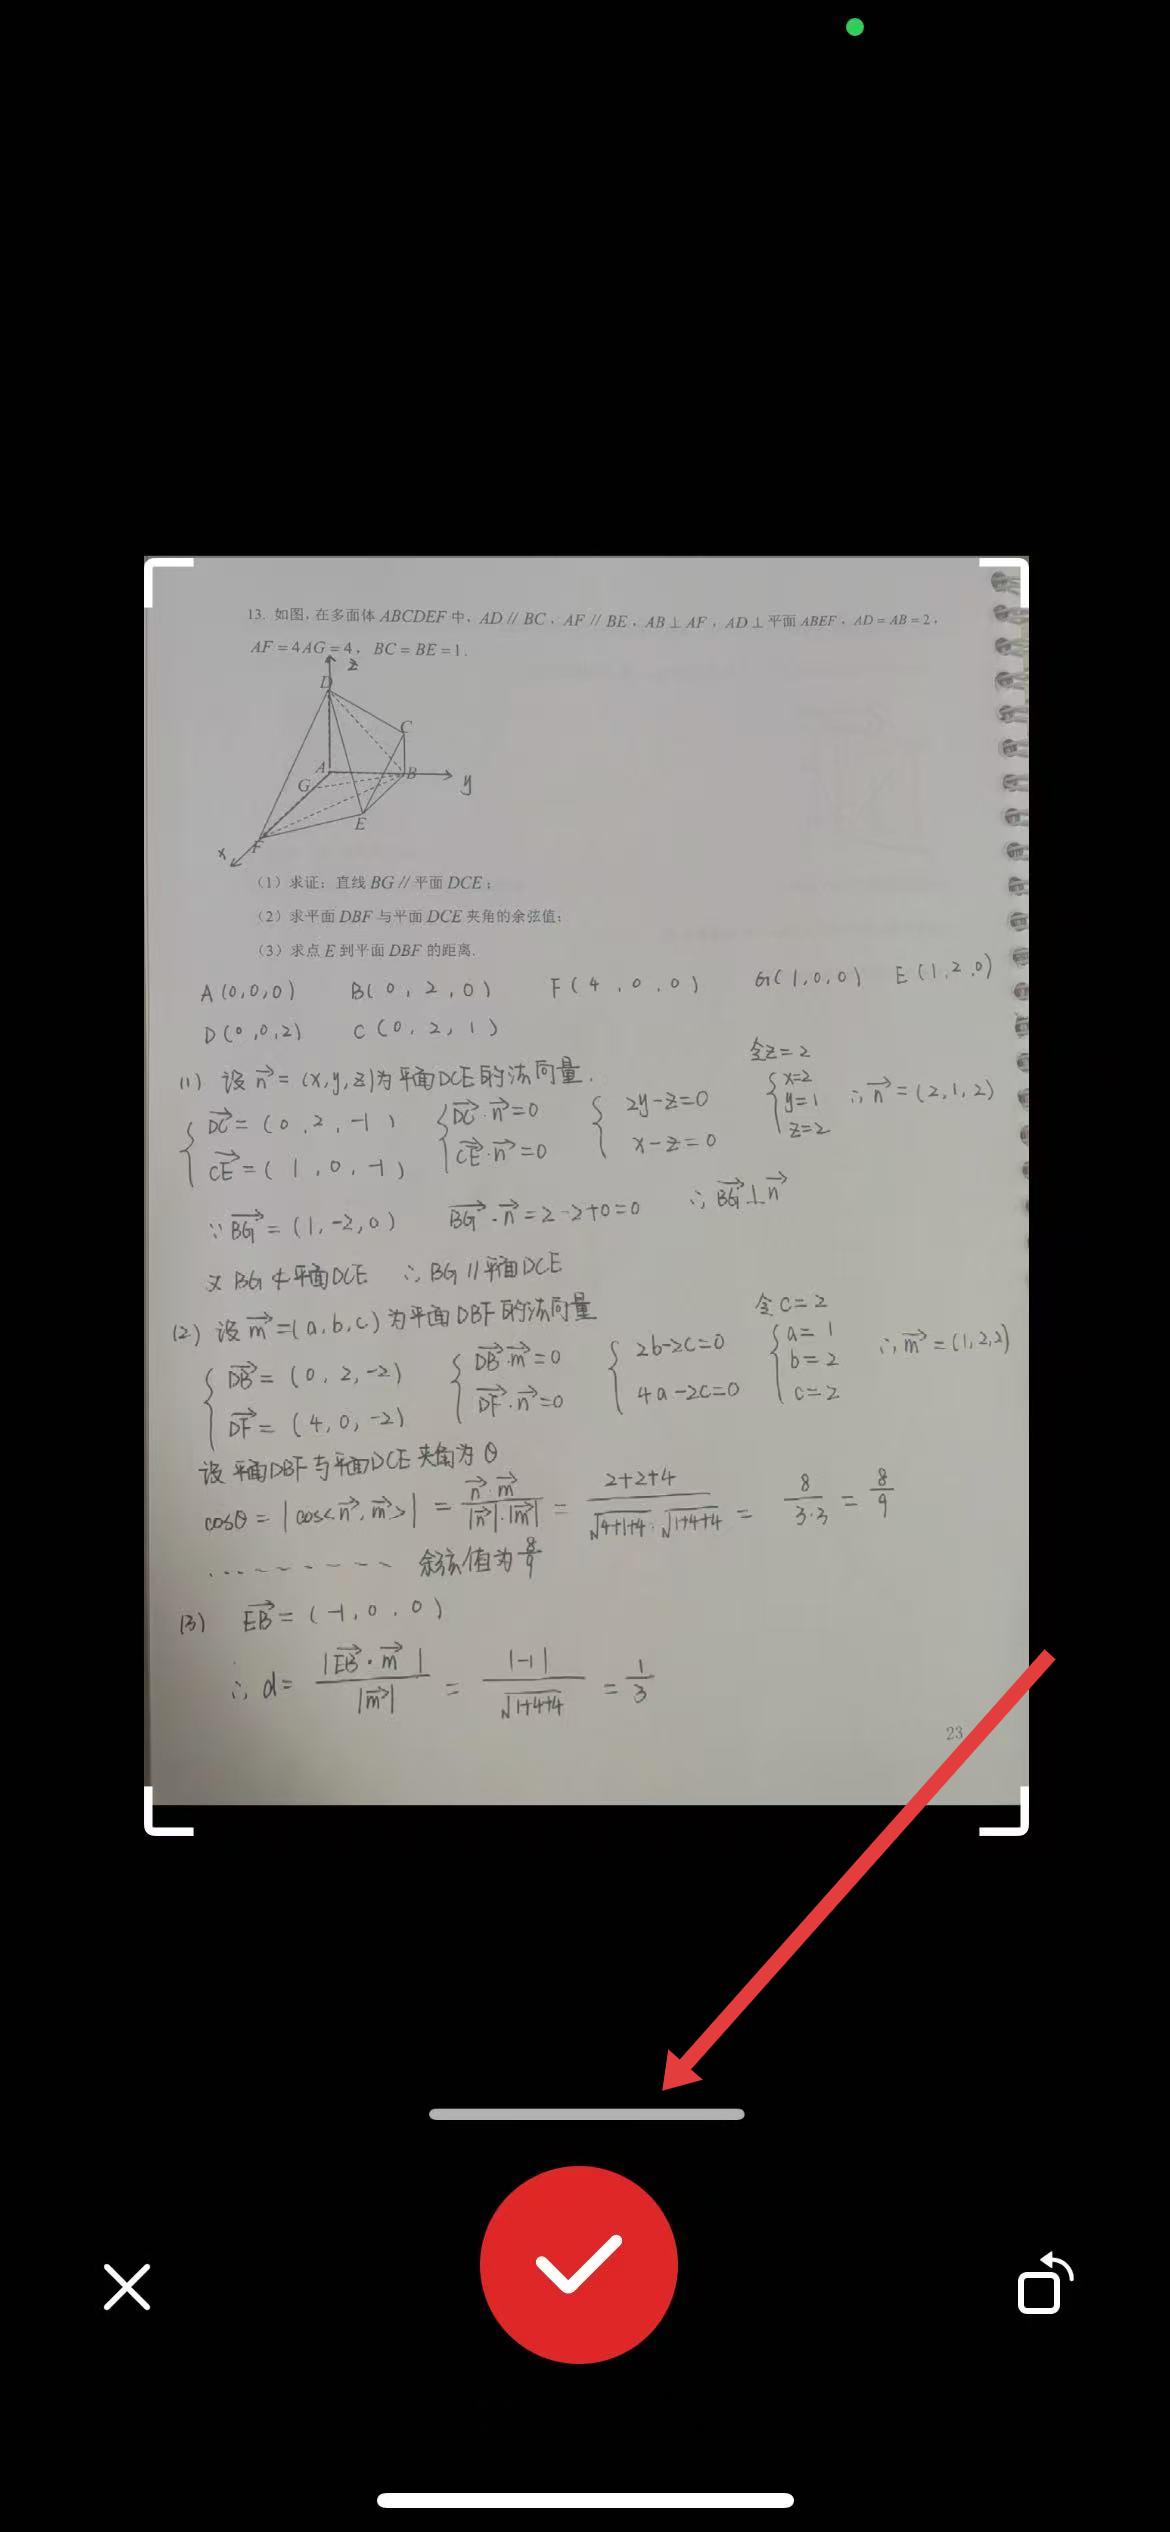 13. 如图,在多面体 ABCDEF 中, AD // BC, AF // BE, AB ⊥ AF, AD ⊥ 平面 ABEF, AD = AB = 2,
AF = 4AG = 4, BC = BE = 1.
z
D
C
A
B
y
G
E
x
F
(1) 求证: 直线 BG // 平面 DCE;
(2) 求平面 DBF 与平面 DCE 夹角的余弦值;
(3) 求点 E 到平面 DBF 的距离.
A(0,0,0) B(0,2,0) F(4,0,0) G(1,0,0) E(1,2,0)
D(0,0,2) C(0,2,1)
令z=2
(1) 设 n→ = (x,y,z)为平面DCE的法向量.
{ DC→ = (0,2,-1) { DC→·n→=0 { 2y-z=0 { x=2 y=1 z=2 ∴ n→ = (2,1,2)
CE→ = (1,0,-1) CE→·n→=0 x-z=0
∵ BG→ = (1,-2,0) BG→·n→=2-2+0=0 ∴ BG→⊥n→
又 BG⊄平面DCE ∴ BG//平面DCE
令 c=2
(2) 设 m→=(a,b,c)为平面DBF的法向量
{ DB→ = (0,2,-2) { DB→·m→=0 { 2b-2c=0 { a=1 b=2 c=2 ∴ m→ = (1,2,2)
DF→ = (4,0,-2) DF→·n→=0 4a-2c=0
设平面DBF与平面DCE夹角为θ
cosθ = |cos<n→,m→>| = n→·m→ / |n→|·|m→| = 2+2+4 / √4+1+4·√1+4+4 = 8 / 3·3 = 8/9
余弦值为 8/9
(3) EB→ = (-1,0,0)
∴ d = |EB→·m→| / |m→| = |-1| / √1+4+4 = 1/3
23